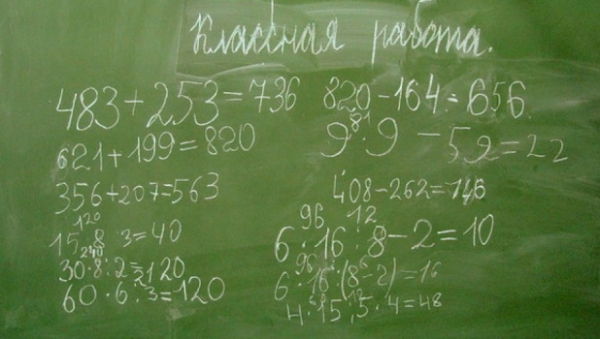 Классная работа.
483+253=736
820-164=656.
621+199=820
81
9·9-59=22
356+207=563
408-262=146
120
15·8:3=40
96 12
6·16:8-2=10
240
30·8:2=120
96 6
6·16:(8-2)=16
60·6:3=120
4·15:5·4=48